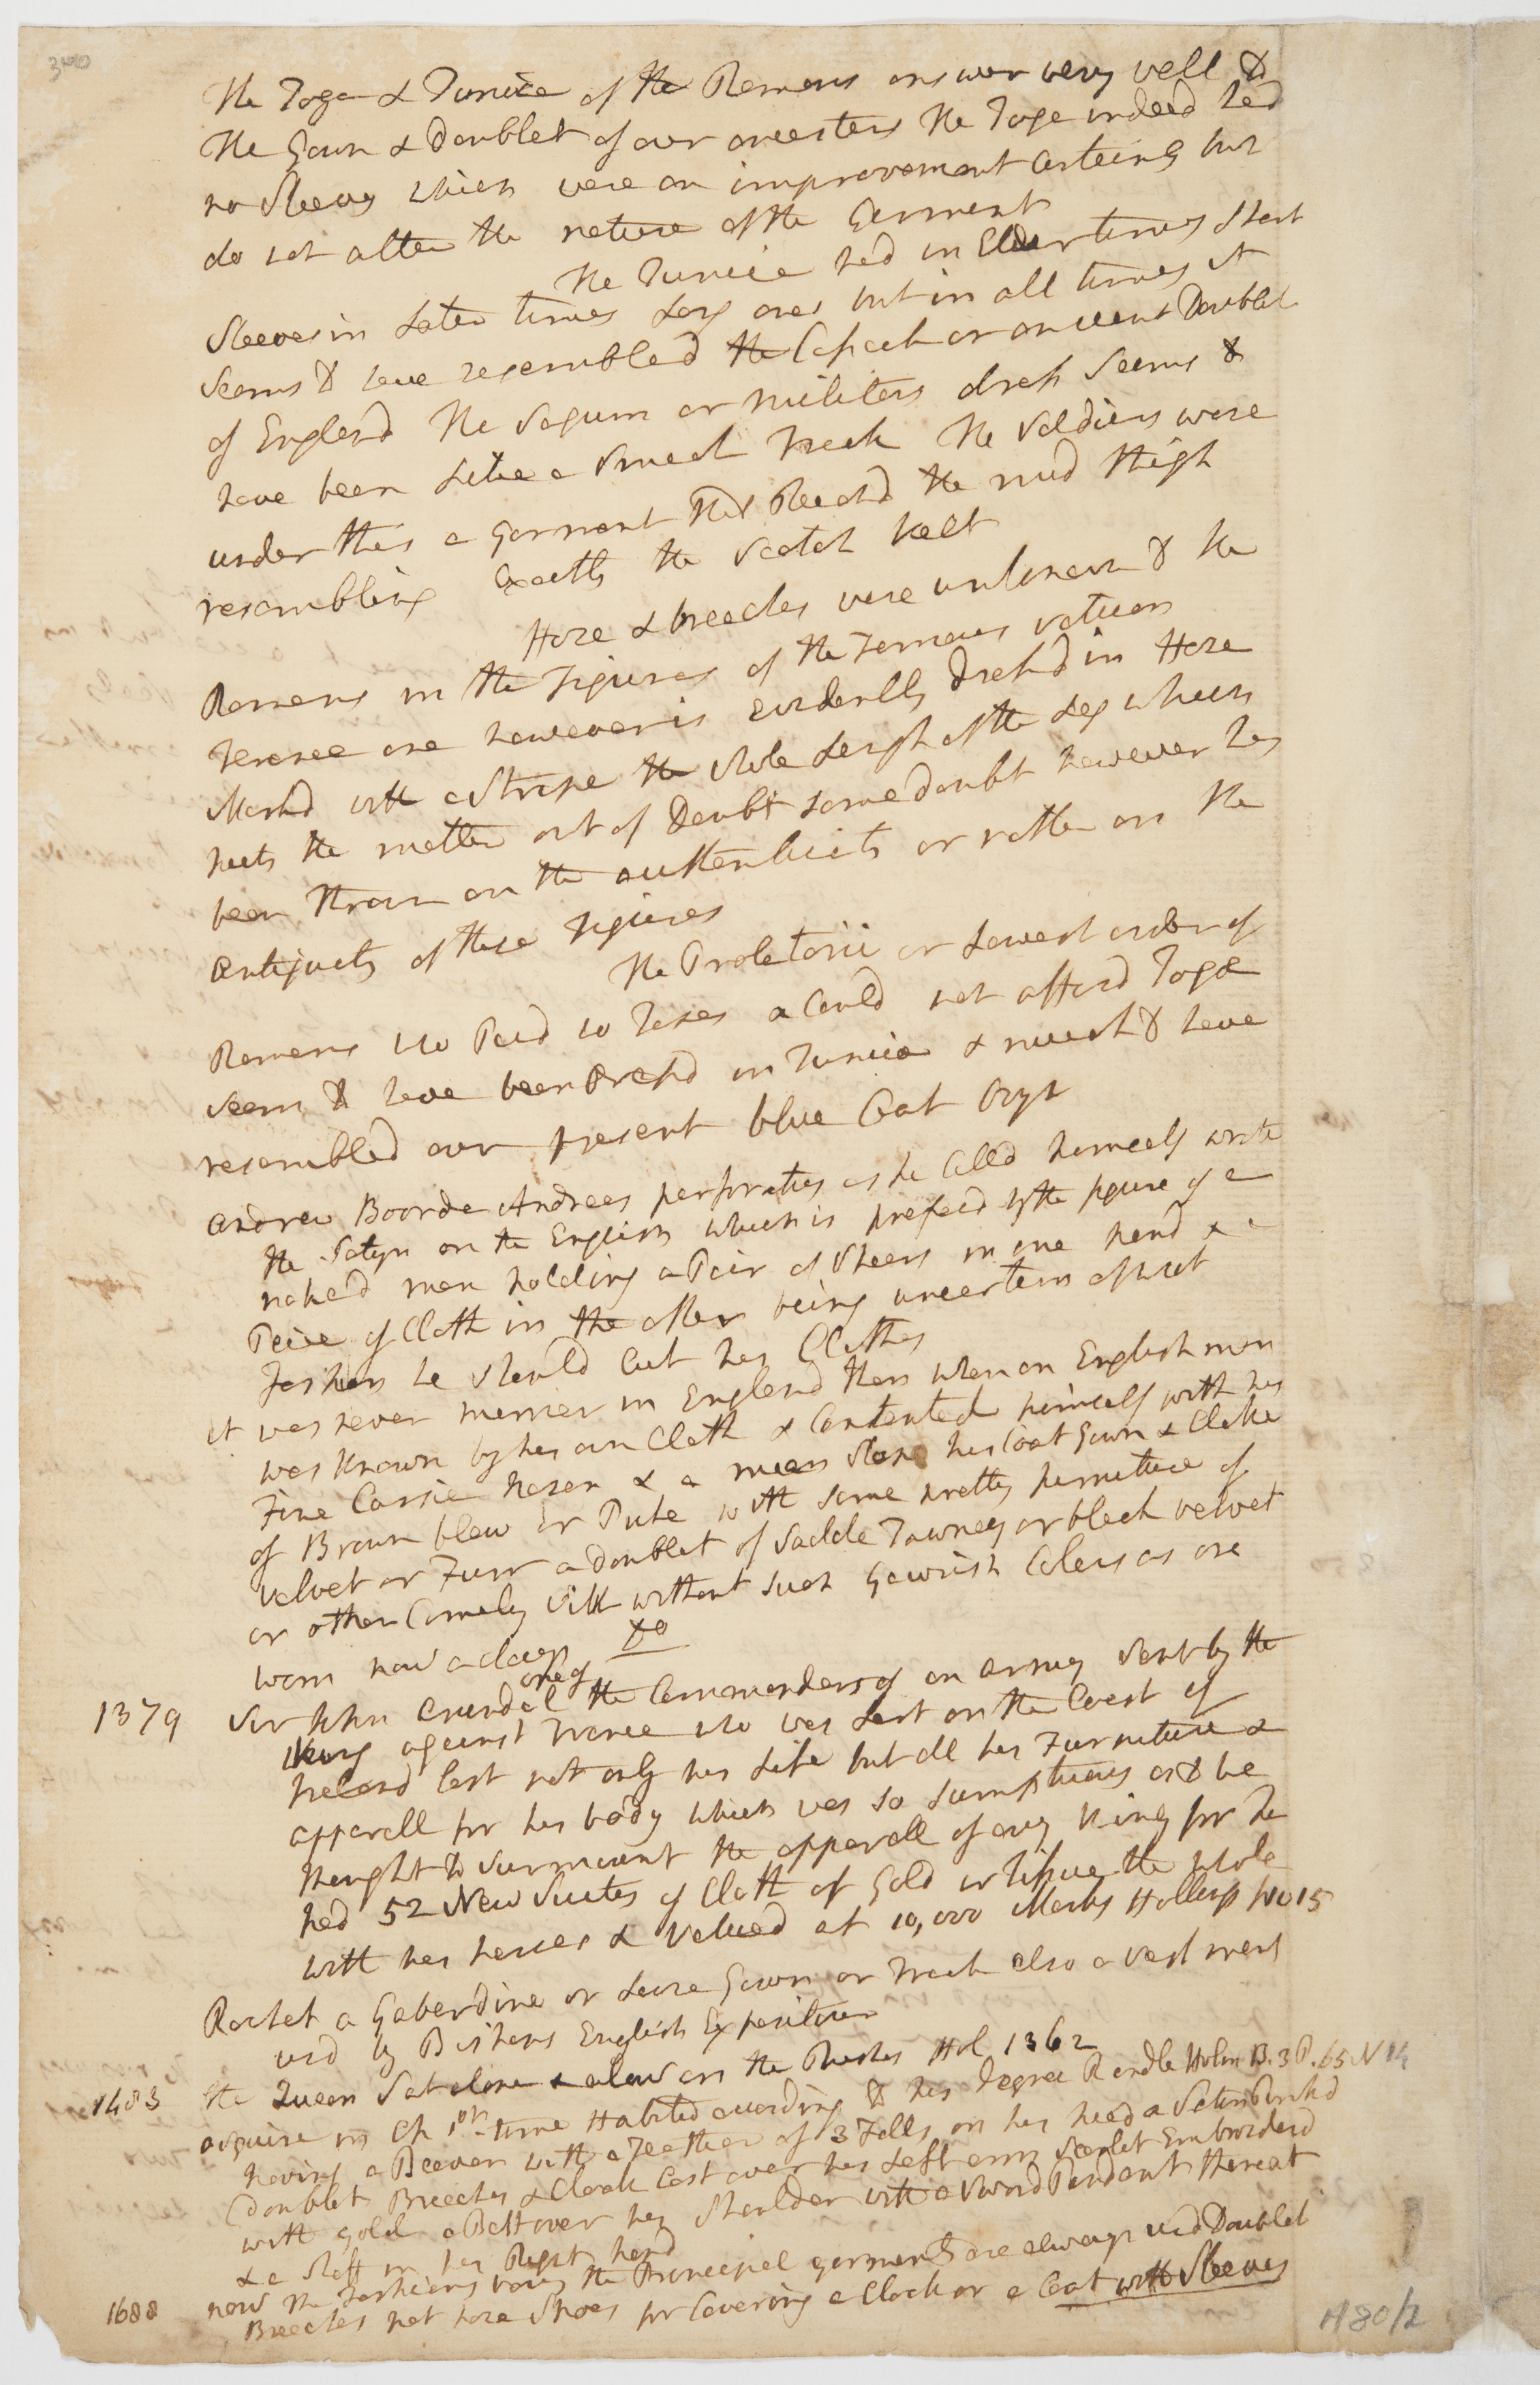 340
The Toga & Tunica of the Romans answer very well to
The Gown & Doublet of our ancesters The Toga indeed had
no Sleeves which were an improvement certainly but
do not alter the nature of the Garment
The Tunica had in Elder times short
Sleeves in Later times Long ones but in all times it
Seems to have resembled the Cassock or ancient Doublet
of England The Sagum or Military dress Seems to
have been Like a Smock Frock The Soldiers wore
under this a Garment that Reachd the mid thigh
resembling Exactly the Scotch kelt
Hose & breeches were unknown to the
Romans in the Figures of the Famous vatican
Terence one however is evidently Dressd in Hose
Markd with a Stripe the whole Length of the Leg which
puts the matter out of Doubt some doubt however has
been thrown on the authenticity or rather on the
antiquity of these Figures
The Proletarii or Lowest order of
Romans who Paid no Taxes & Could not afford Togæ
Seem to have been Dressd in Tunica & much to have
resembled our present blue Coat boys
Andrew Boorde Andreas perforatus as he Calld himself wrote
the Satyr on the English which is prefaced by the figure of a
naked man holding a Pair of Sheers in one hand & a
Peice of Cloth in the other being uncertain of what
Fashion he should Cut his Cloths
it was never merrier in England then when an English man
was known by his own Cloth & Contented himself with his
Fine Carsie hosen & a mean Slop his Coat Gown & Cloke
of Brown blew or Puke with some pretty furniture of
velvet or Furr a doublet of Saddle Tawney or black velvet
or other Comely Silk without such Gawrish Colers as are
worn now a days Do
1379 Sir John Arundel one of the Commanders of an army Sent by the
King against France who was Lost on the Coast of
Ireland lost not only his Life but all his Furniture &
apparell for his body which was so Sumptuous as to be
thought to Surmount the apparell of any King for he
had 52 New Sutes of Cloth of Gold or Tissue the whole
with his horses & valued at 10,000 Marks Hollings No 15
Rochet a Gaberdine or Loose Gown or Frock also a vestment
usd by Bishops English Expositour
1483 the Queen Sat alone & alow on the Rushes Hol 1362
Esquire in Ch 1st time Habited according to his Degree Randle Holm B. 3 P. 65 N 14
having a Beever with a Feather of 3 Falls on his head a Satin Pinkd
Doublet Breeches & Cloak Cast over his Left arm Scarlet Embroiderd
with gold a Belt over his Shoulder with a Sword Pendant thereat
& a Staff in his Right hand
1688 now the Fashions vary the Principal garments are always usd Doublet
Breeches hat hose Shoes for Covering a Cloak or a Coat with Sleeves
H 80/2